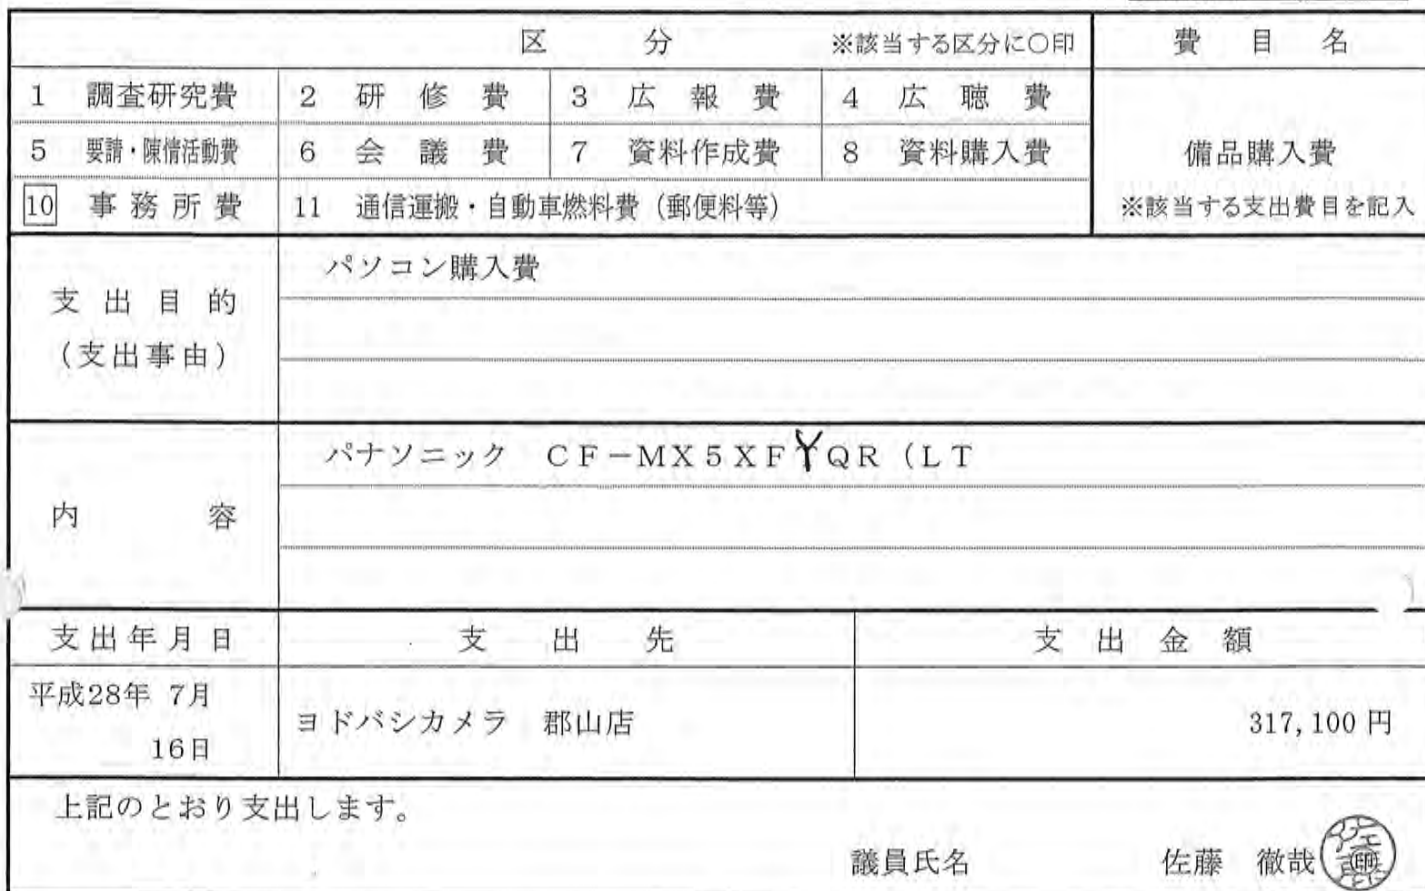 区 分 ※該当する区分に○印 費 目 名
1 調査研究費 2 研 修 費 3 広 報 費 4 広 聴 費
5 要請・陳情活動費 6 会 議 費 7 資料作成費 8 資料購入費 備品購入費
10 事務所費 11 通信運搬・自動車燃料費(郵便料等) ※該当する支出費目を記入
パソコン購入費
支出目的
(支出事由)
パナソニック CF-MX5XFYQR(LT
内 容
支出年月日 支 出 先 支 出 金 額
平成28年 7月
16日
ヨドバシカメラ 郡山店 317,100 円
上記のとおり支出します。
議員氏名 佐藤 徹哉 印